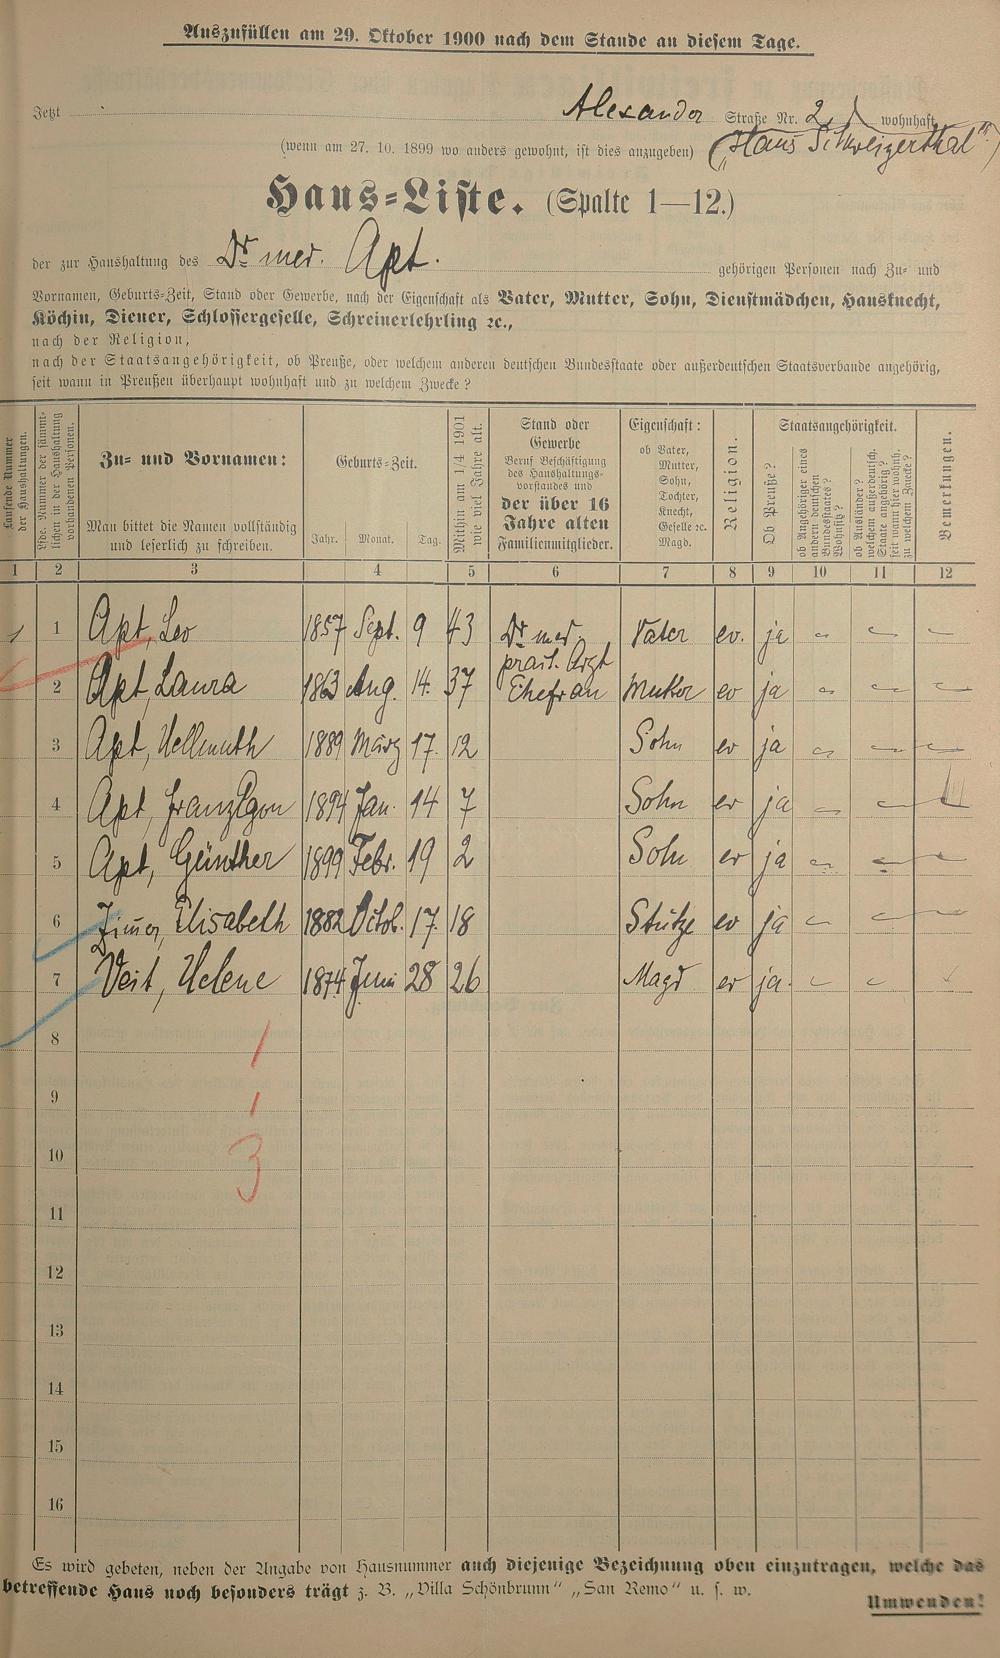 Auszufüllen am 29. Oktober 1900 nach dem Stande an diesem Tage.
Jetzt Alexander Straße Nr. 2, wohnhaft
(wenn am 27. 10. 1899 wo anders gewohnt, ist dies anzugeben) („Haus Schweizerthal")
Haus-Liste. (Spalte 1—12.)
der zur Haushaltung des Dr. med. Apt. gehörigen Personen nach Zu- und
Vornamen, Geburts-Zeit, Stand oder Gewerbe, nach der Eigenschaft als Vater, Mutter, Sohn, Dienstmädchen, Hausknecht,
Köchin, Diener, Schlossergeselle, Schreinerlehrling ꝛc.,
nach der Religion,
nach der Staatsangehörigkeit, ob Preuße, oder welchem anderen deutschen Bundesstaate oder außerdeutschen Staatsverbande angehörig,
seit wann in Preußen überhaupt wohnhaft und zu welchem Zwecke?
Laufende Nummer der Haushaltungen.
Lfde. Nummer der sämmtlichen in der Haushaltung vorhandenen Personen.
Zu- und Vornamen:
Man bittet die Namen vollständig
und leserlich zu schreiben.
Geburts-Zeit.
Jahr. Monat. Tag.
Mithin am 1/4 1901 wie viel Jahre alt.
Stand oder
Gewerbe
Beruf Beschäftigung
des Haushaltungs-
vorstandes und
der über 16
Jahre alten
Familienmitglieder.
Eigenschaft:
ob Vater,
Mutter,
Sohn,
Tochter,
Knecht,
Geselle ꝛc.
Magd.
Religion.
Staatsangehörigkeit.
Ob Preuße?
ob Angehöriger eines andern deutschen Bundesstaates? Wohnsitz?
ob Ausländer? welchem außerdeutsch. Staate angehörig? seit wann hier wohnh. zu welchem Zwecke?
Bemerkungen.
1 2 3 4 5 6 7 8 9 10 11 12
1 1 Apt, Leo 1857 Sept. 9 43 Dr. med. prakt. Arzt Vater ev. ja
2 Apt, Laura 1863 Aug. 14. 37 Ehefrau Mutter ev ja
3 Apt, Hellmuth 1889 März 17. 12 Sohn ev ja
4 Apt, Franz Egon 1894 Jan. 14 7 Sohn ev ja
5 Apt, Günther 1899 Febr. 19 2 Sohn ev ja
6 Elisabeth 1882 Octob. 17. 18 Stütze ev ja
7 Veit, Helene 1874 Juni 28 26 Magd ev ja.
8 1
9 1
10 3
11
12
13
14
15
16
Es wird gebeten, neben der Angabe von Hausnummer auch diejenige Bezeichnung oben einzutragen, welche das
betreffende Haus noch besonders trägt z. B. „Villa Schönbrunn" „San Remo" u. s. w.
Umwenden!